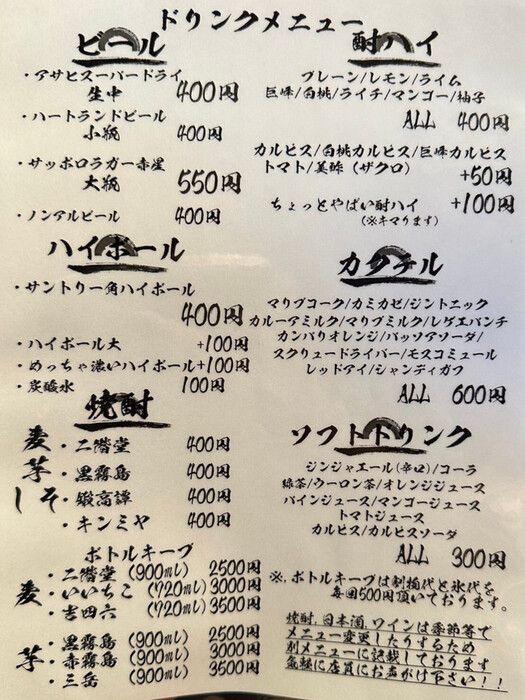 ドリンクメニュー
ビール
・アサヒスーパードライ
生中 400円
・ハートランドビール
小瓶 400円
・サッポロラガー赤星
大瓶 550円
・ノンアルビール 400円
ハイボール
・サントリー角ハイボール
400円
・ハイボール大 +100円
・めっちゃ濃いハイボール+100円
・炭酸水 100円
焼酎
麦・二階堂 400円
芋・黒霧島 400円
しそ・鍛高譚 400円
・キンミヤ 400円
ボトルキープ
麦
・二階堂(900ml) 2500円
・いいちこ(720ml)3000円
・吉四六(720ml)3500円
芋
・黒霧島(900ml) 2500円
・赤霧島(900ml) 3000円
・三岳(900ml) 3500円
酎ハイ
プレーン/レモン/ライム
巨峰/白桃/ライチ/マンゴー/柚子
ALL 400円
カルピス/白桃カルピス/巨峰カルピス
トマト/美酢(ザクロ)
+50円
ちょっとやばい酎ハイ +100円
(※キマります)
カクテル
マリブコーク/カミカゼ/ジントニック
カルーアミルク/マリブミルク/レゲエパンチ
カンパリオレンジ/パッソアソーダ/
スクリュードライバー/モスコミュール
レッドアイ/シャンディガフ
ALL 600円
ソフトドリンク
ジンジャエール(辛口)/コーラ
緑茶/ウーロン茶/オレンジジュース
パインジュース/マンゴージュース
トマトジュース
カルピス/カルピスソーダ
ALL 300円
※,ボトルキープは割物代と氷代を
毎回500円頂いております。
焼酎,日本酒,ワインは季節等で
メニュー変更したりするため
別メニューに記載しております
気軽に店員にお声がけ下さい!!